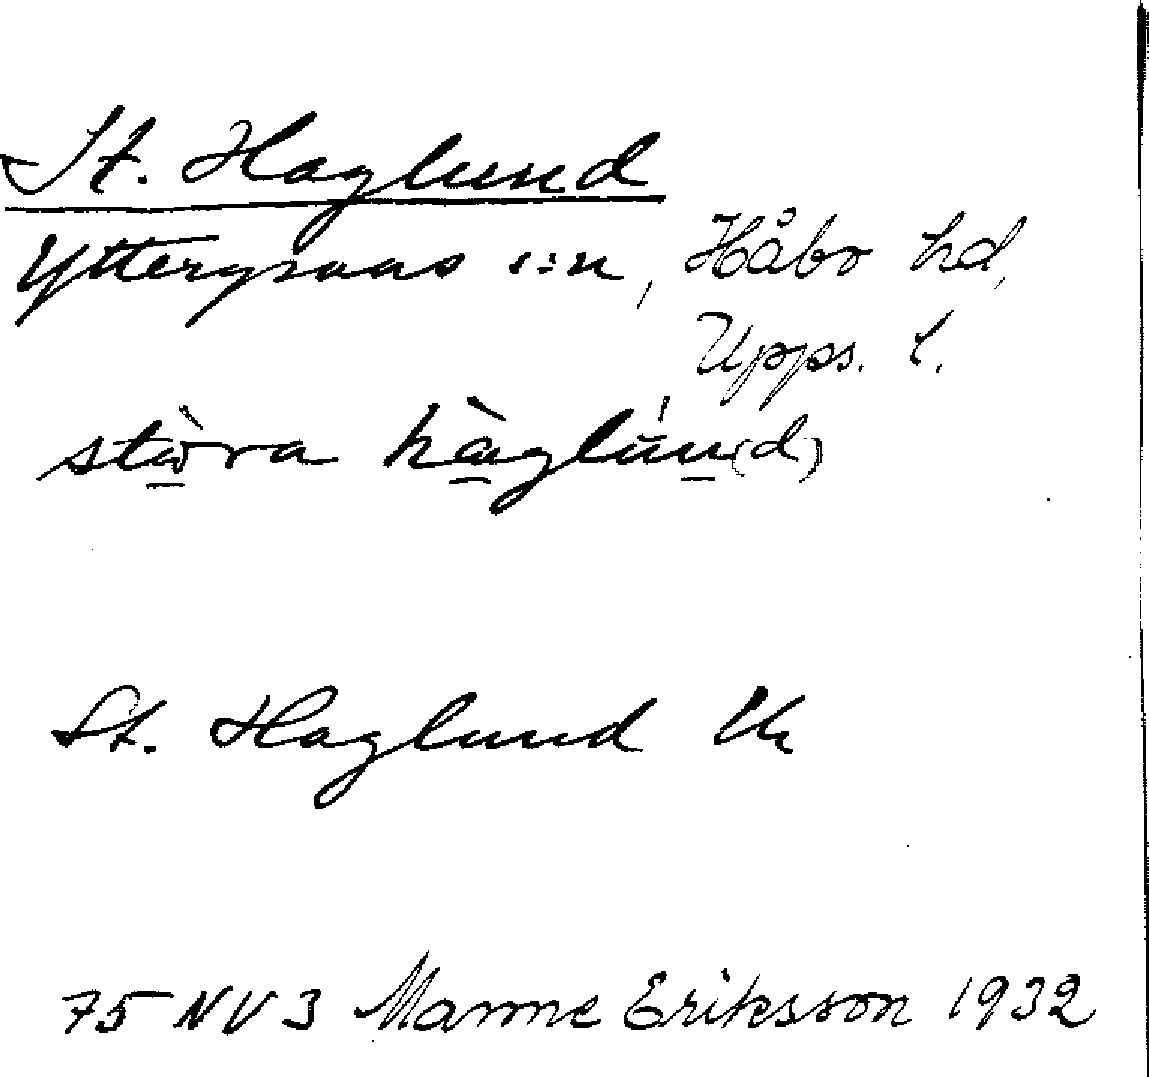 St. Haglund
Yttergrans s:n, Håbo hd,
Upps. l.
stòra hàglún(d)
St. Haglund Ek
75 NV 3 Manne Eriksson 1932